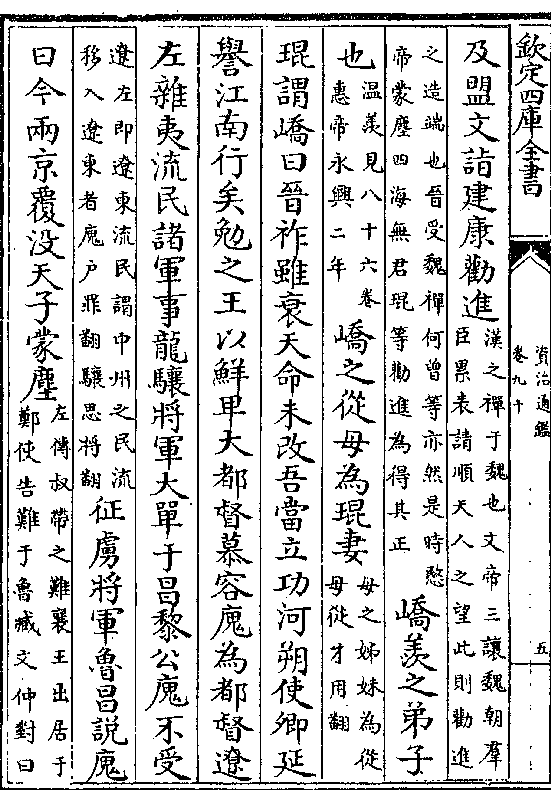 欽定四庫全書
資治通鑑
卷九十
五
及盟文詣建康勸進漢之禪于魏也文帝三讓魏朝羣
臣累表請順天人之望此則勸進
之造端也晉受魏禪何曾等亦然是時愍
帝蒙塵四海無君琨等勸進為得其正嶠羨之弟子
也温羨見八十六卷
惠帝永興二年嶠之從母為琨妻母之姊妹為從
母從才用翻
琨謂嶠曰晉祚雖衰天命未改吾當立功河朔使卿延
譽江南行矣勉之王以鮮卑大都督慕容廆為都督遼
左雜夷流民諸軍事龍驤將軍大單于昌黎公廆不受
遼左即遼東流民謂中州之民流
移入遼東者廆戶罪翻驤思將翻征虜將軍魯昌説廆
曰今兩京覆没天子蒙塵左傳叔帶之難襄王出居于
鄭使告難于魯臧文仲對曰